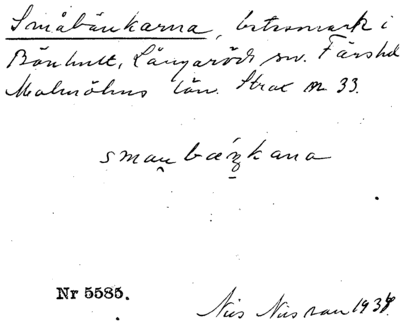 Småbänkarna, betesmark i
Bänhult, Långaröds sn. Färs hd
Malmöhus län. Strax n 33.
smau̯bæŋkana
Nr 5585.
Nils Nilsson 1934.